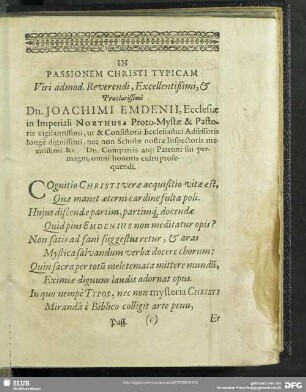 IN
PASSIONEM CHRISTI TYPICAM
Viri admod. Reverendi, Excellentißimi, &
Præclarißimi
Dn. JOACHIMI EMDENII, Ecclesiæ
in Imperiali NORTHUSA Proto-Mystæ & Pasto-
ris vigilantissimi, ut & Consistorii Ecclesiastici Adsessoris
longè dignissimi, nec non Scholæ nostræ Inspectoris me-
ritissimi &c. Dn. Compatris atq; Patroni sui per-
magni, omni honoris cultu prose-
quendi.
COgnitio CHRISTI veræ acquisitio vitæ est,
Quæ manet æterni cardine fulta poli.
Hujus discendæ partim, partimq; docendæ
Quid pius EMDENIUS non meditatur opis?
Non satis ad fani suggestus retur, & aras
Mystica salvandum verba docere chorum:
Quin sacra per totũ meletemata mittere mundũ,
Eximiè dignum laudis adornat opus.
In quo nempè TYPOS, nec non mysteria CHRISTI
Mirandâ è Biblico colligit arte penu,
Pass. (c) Et
SLUB
DFG